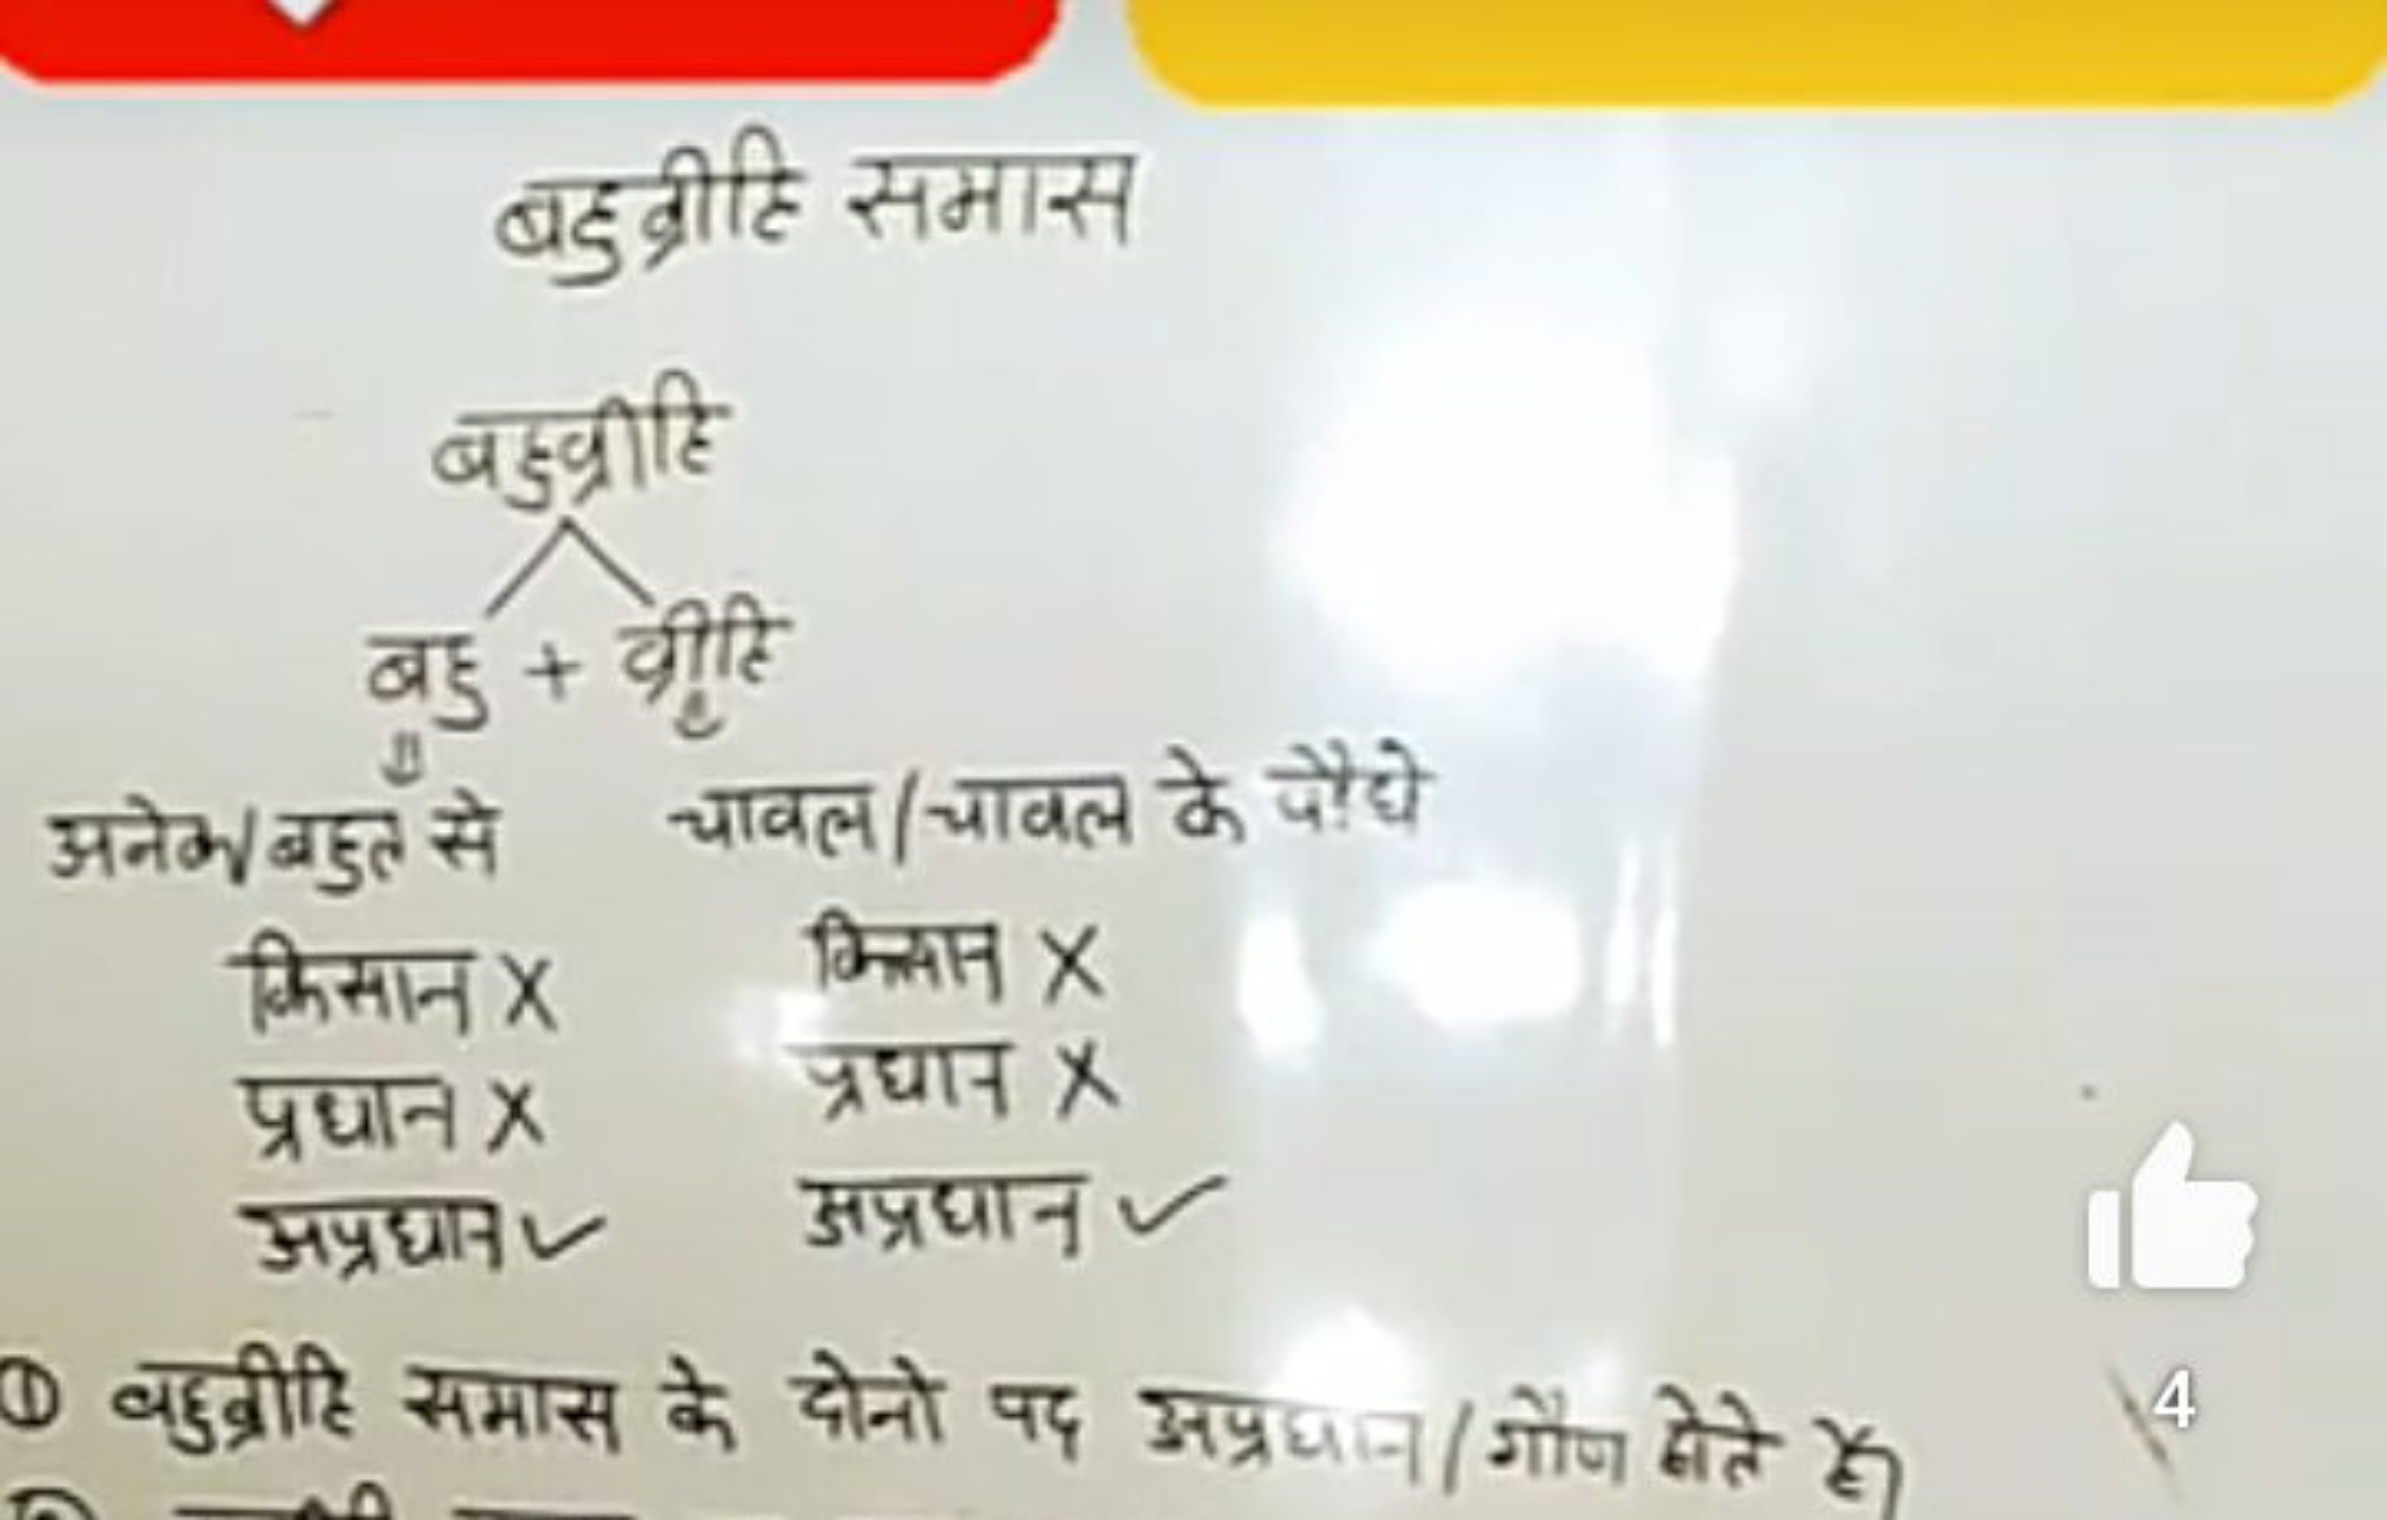 बहुव्रीहि समास
बहुव्रीहि
बहु + व्रीहि
अनेक/बहुत से चावल/चावल के पौधे
किसान X किसान X
प्रधान X प्रधान X
अप्रधान ✓ अप्रधान ✓
① बहुव्रीहि समास के दोनो पद अप्रधान/गौण होते है।
4